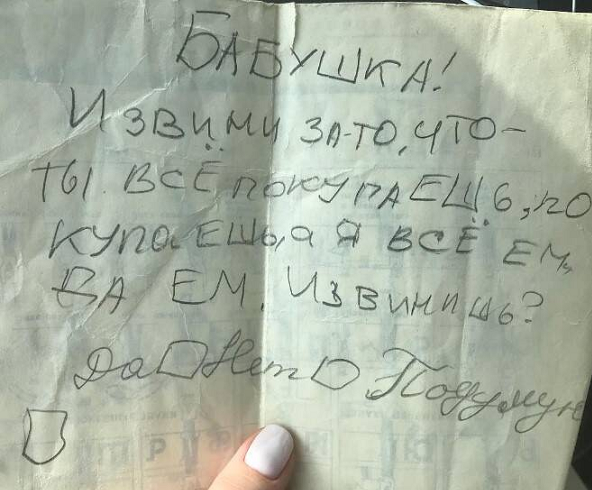 БАБУШКА!
ИЗВИНИ ЗА-ТО, ЧТО-
ТЫ ВСЁ ПОКУПАЕЩЬ, ПО
КУПАЕШЬ, а Я ВСЁ ЕМ,
ДА ЕМ. ИЗВИНИШЬ?
Да Нет Подумую